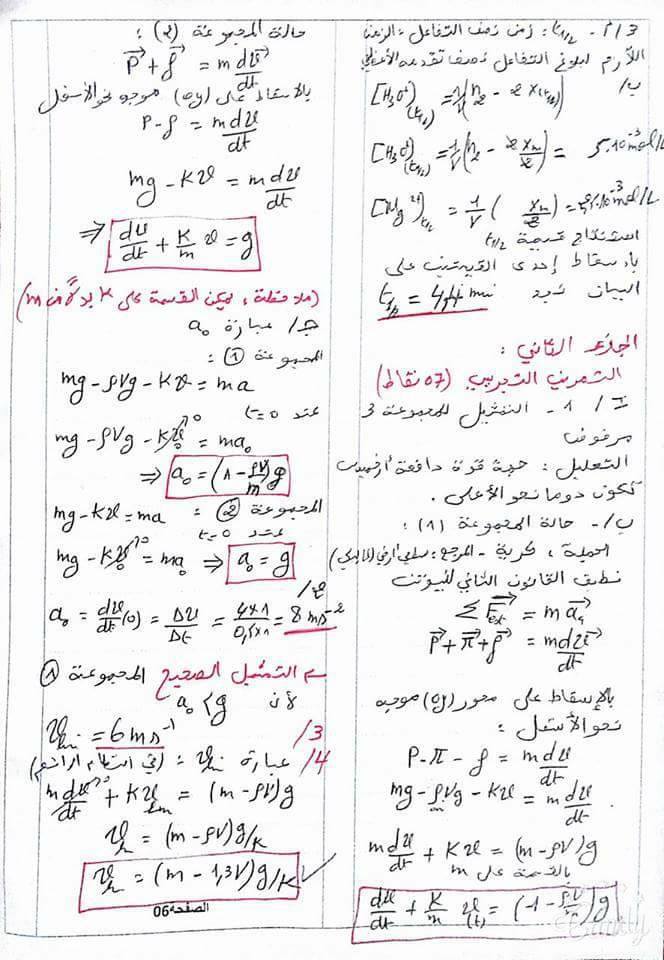 3/ أ - t1/2 : زمن نصف التفاعل : الزمن
اللازم لبلوغ التفاعل نصف تقدمه الأعظمي
ب/ [H3O+](t1/2) = 1/V (n2 - 2 x(t1/2))
[H3O+](t1/2) = 1/V (n2 - 2 xm/2) = 5.10-3 mol/L
[Mg2+]t1/2 = 1/V (xm/2) = 10-3 mol/L
استنتاج قيمة t1/2
بإسقاط إحدى القيمتين على
البيان نجد t1/2 = min
الجزء الثاني :
التمرين التجريبي (07 نقاط)
I / 1 - التمثيل للمجموعة 3
مرفوض
التعليل : جهة قوة دافعة أرخميدس
تكون دوما نحو الأعلى .
ب/- حالة المجموعة (1) :
الجملة : كرية - المرجع : سطحي أرضي
نطبق القانون الثاني لنيوتن
Σ Fext = m aG
P + π + f = m dv/dt
بالإسقاط على محور (oy) موجه
نحو الأسفل :
P - π - f = m dv/dt
mg - ρVg - Kv = m dv/dt
m dv/dt + Kv = (m - ρV)g
بالقسمة على m
dv/dt + K/m v(t) = (1 - ρV/m) g
حالة المجموعة (2) :
P + f = m dv/dt
بالإسقاط على (oy) موجه نحو الأسفل
P - f = m dv/dt
mg - Kv = m dv/dt
⇒ dv/dt + K/m v = g
(ملاحظة : يمكن القسمة على K بدلا من m)
ج/ عبارة a0
المجموعة (1) :
mg - ρVg - Kv = ma
عند t=0
mg - ρVg - Kv0 = ma0
⇒ a0 = (1 - ρV/m) g
المجموعة (2) :
mg - Kv = ma
عند t=0
mg - Kv0 = ma0 ⇒ a0 = g
2/
a0 = dv/dt (0) = Δv/Δt = 4×1/0,5×1 = 8 m s-2
التمثيل الصحيح المجموعة (1)
لأن a0 < g
3/ vlim = 6 m s-1
4/ عبارة vlim : (في النظام الدائم)
m dv/dt + K vlim = (m - ρV)g
vl = (m - ρV)g/K
vl = (m - 1,3V)g/K
الصفحة06